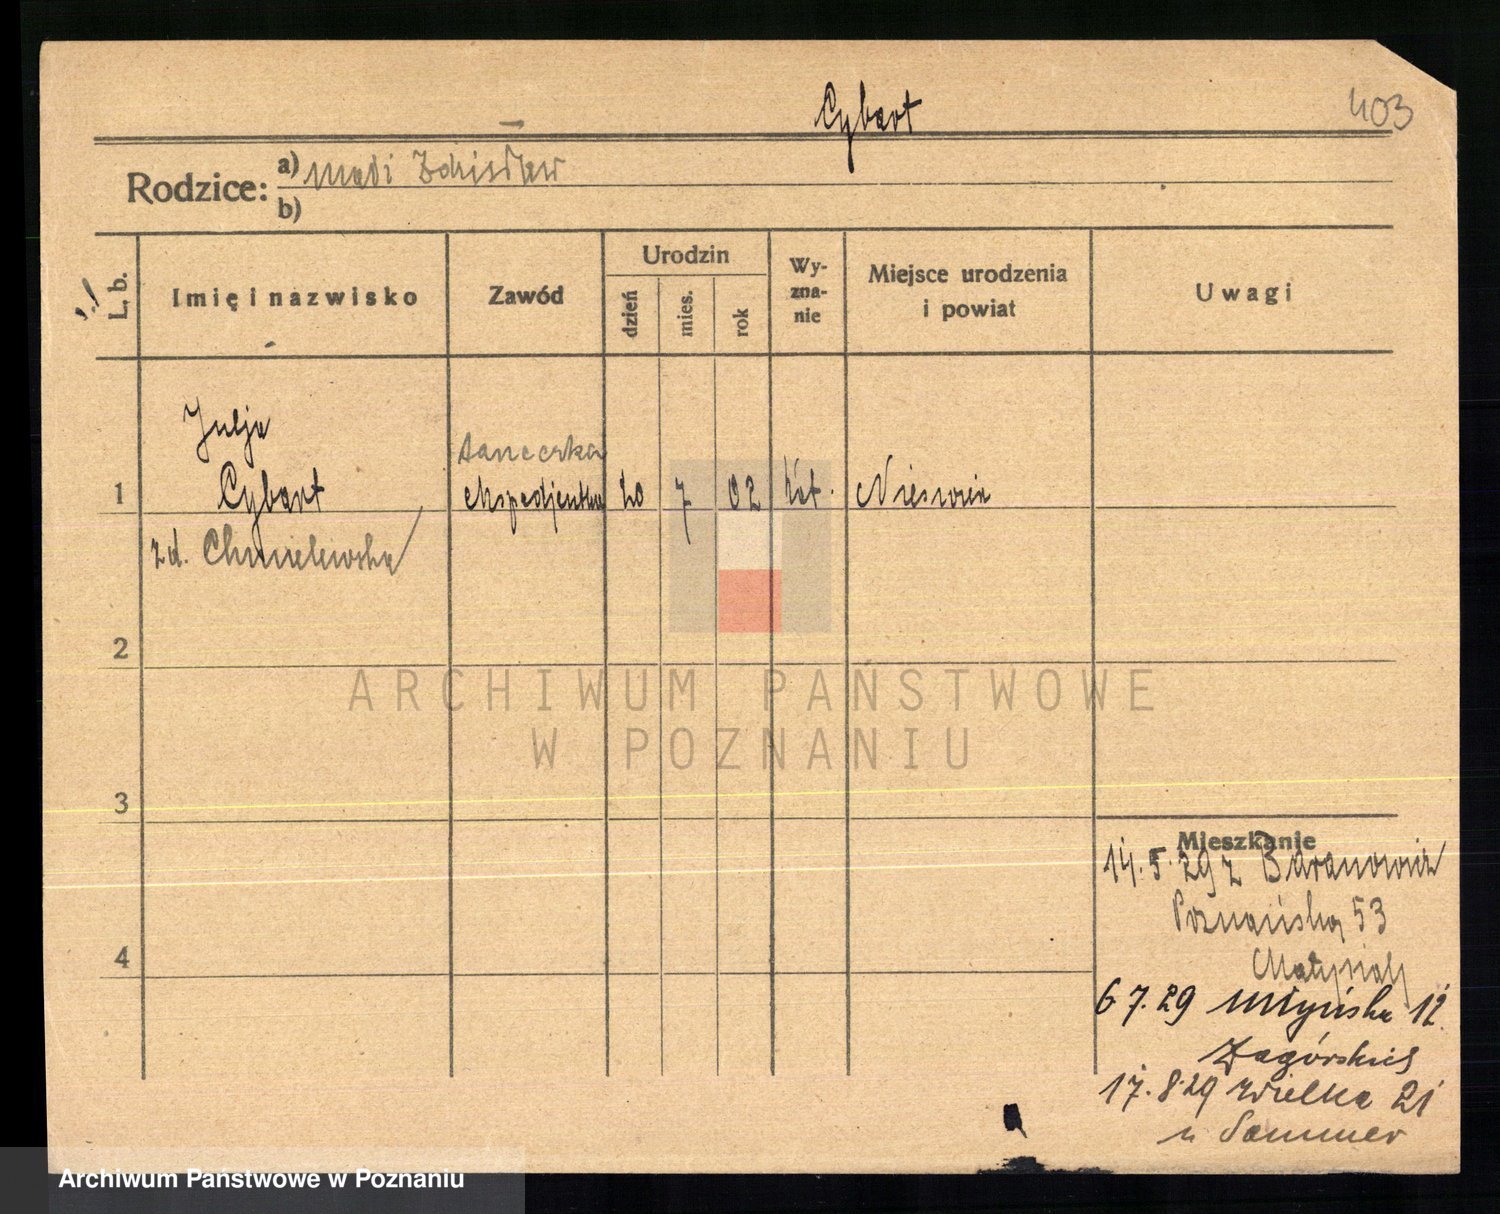 Cybart
403
Rodzice:
a) mąż Zdzisław
b)
L. b.
Imię i nazwisko
Zawód
Urodzin
dzień
mies.
rok
Wy-
zna-
nie
Miejsce urodzenia
i powiat
Uwagi
Julja
tancerka
1 Cybart ekspedjentka 20 7 02 kat. Nieśwież
zd. Chmielewska
2
ARCHIWUM PAŃSTWOWE
W POZNANIU
3
Mieszkanie
14.5.29 z Baranowicz
Poznańska 53
4
6 7.29 Młyńska 12
Zagórskich
17.8.29 Wielka 21
u Sommer
Archiwum Państwowe w Poznaniu